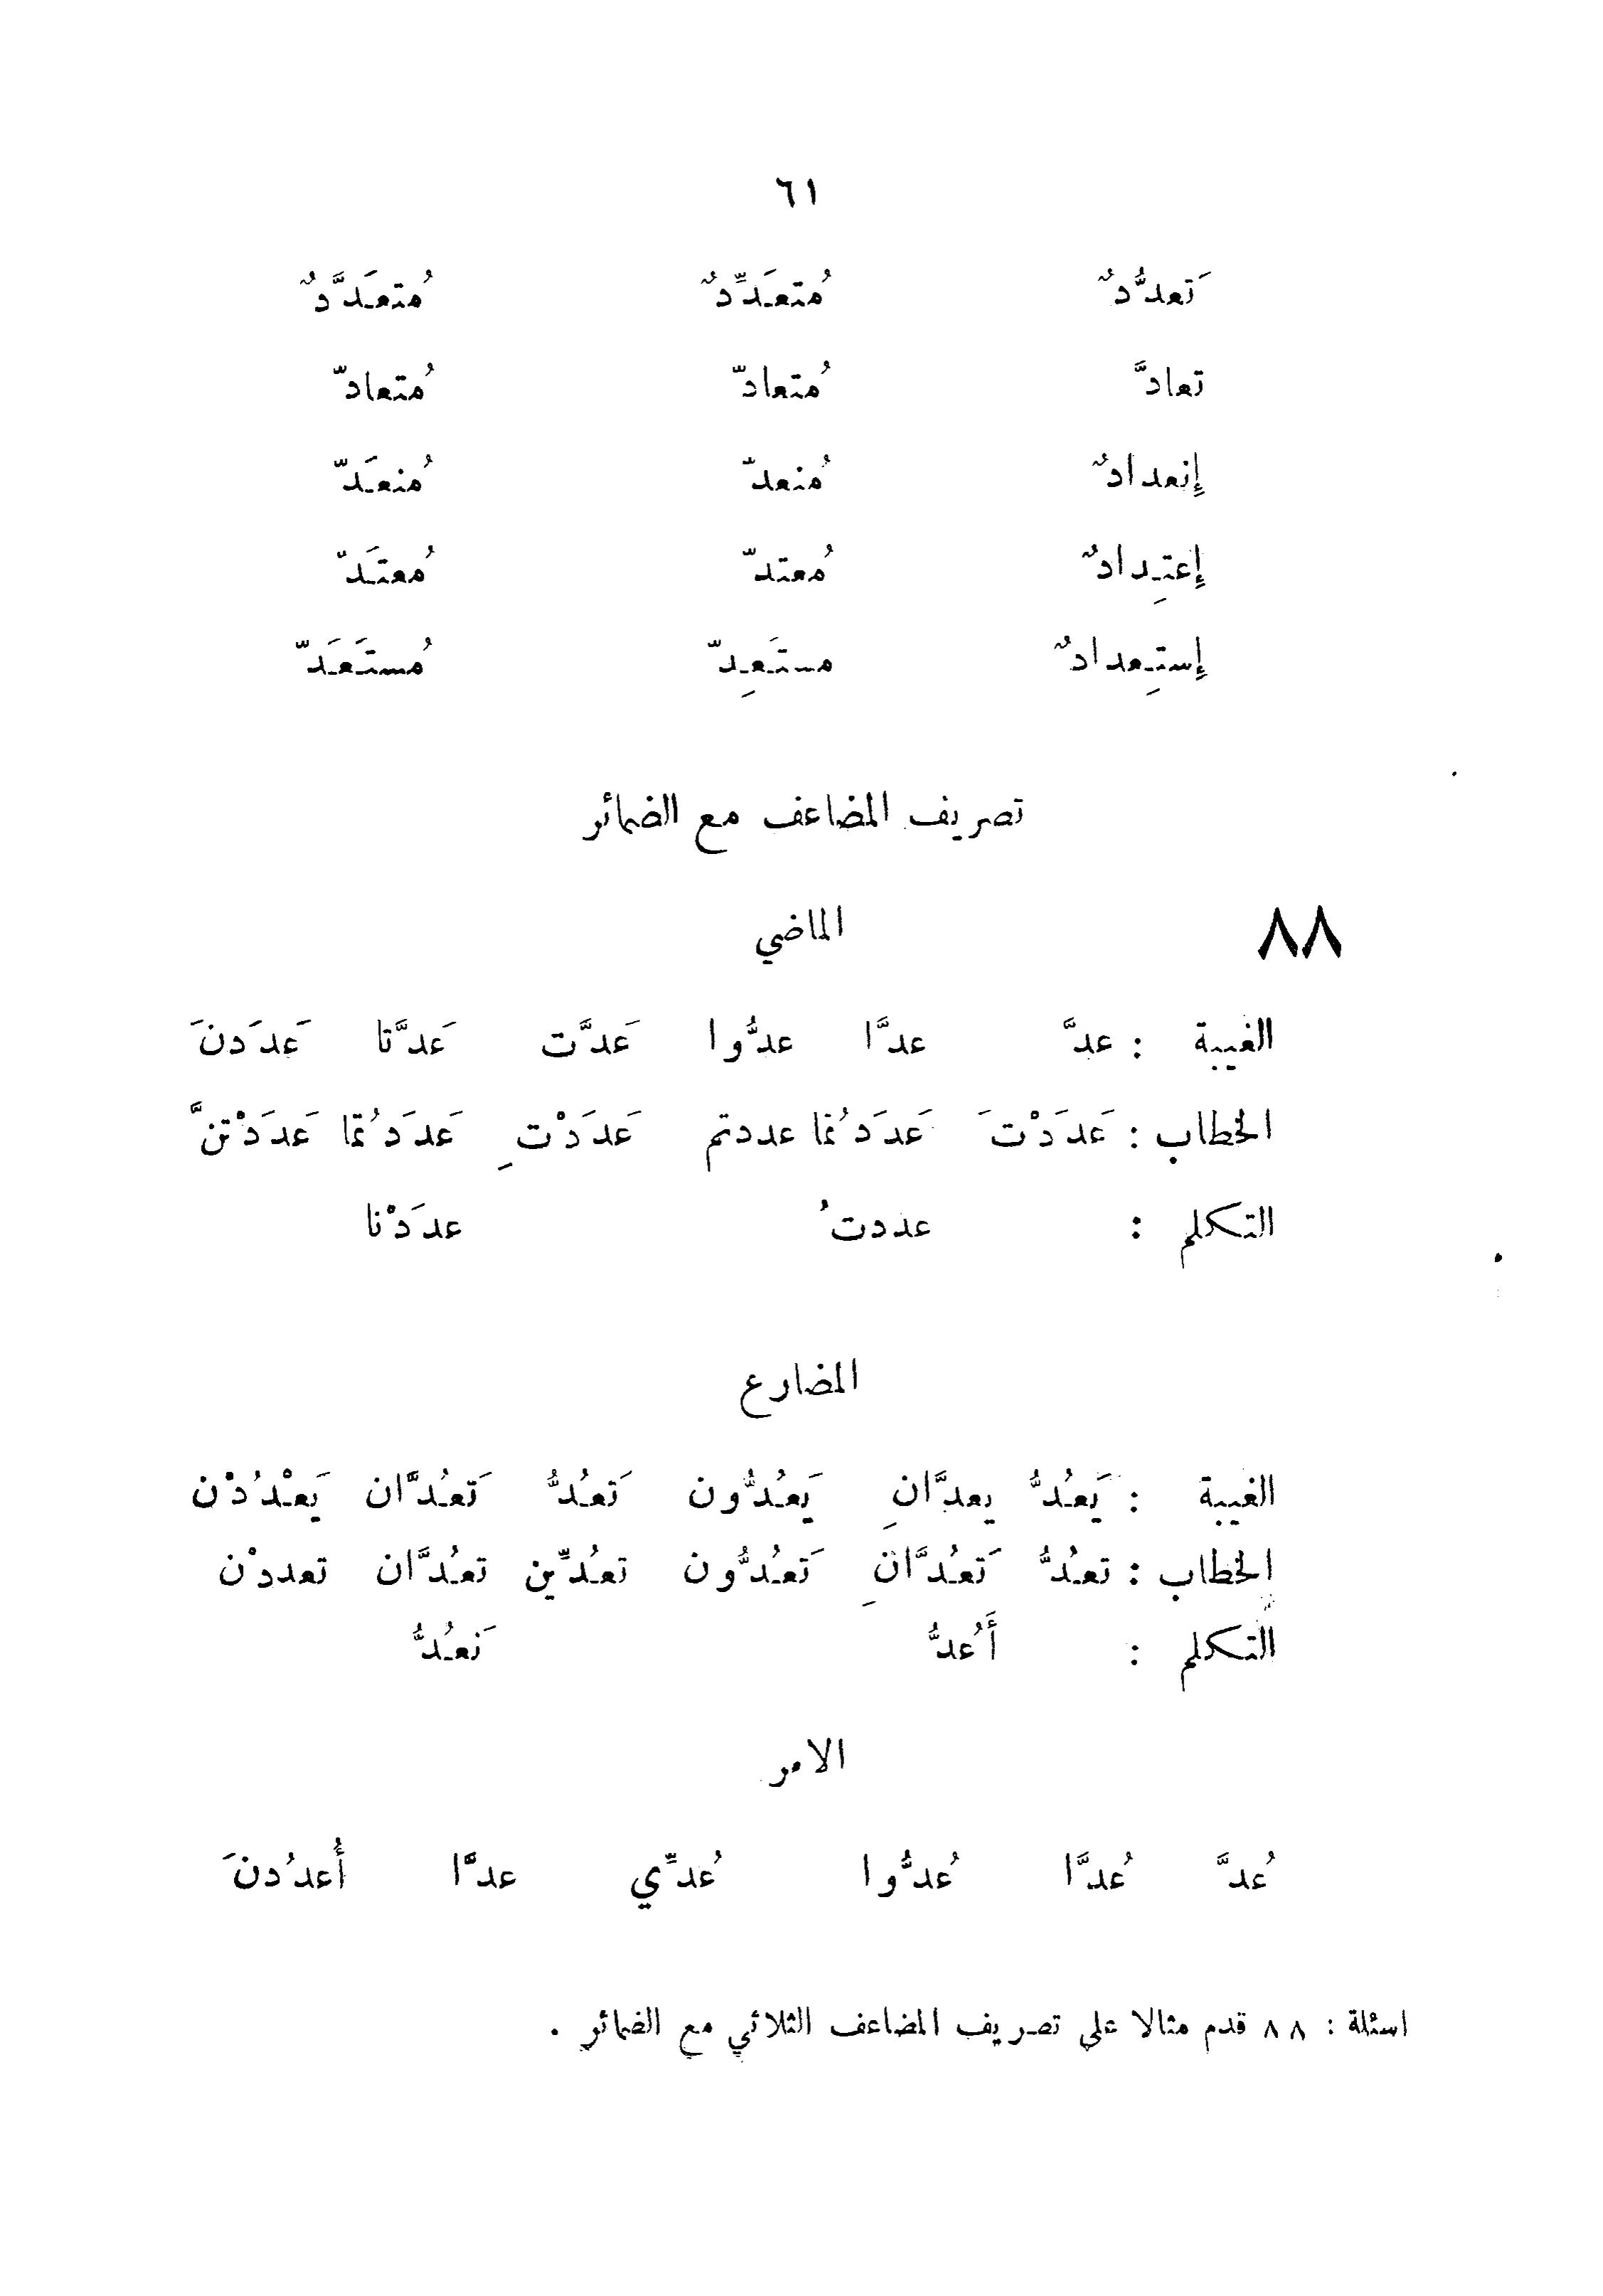 ٦١
تَعدُّدٌ مُتعَدِّدٌ مُتعَدَّدٌ
تعادَّ مُتعادّ مُتعادّ
إِنعدادٌ مُنعدّ مُنعَدّ
إِعتِدادٌ مُعتدّ مُعتَدّ
إِستِعدادٌ مستَعِدّ مُستَعَدّ
تصريف المضاعف مع الضمائر
٨٨ الماضي
الغيبة : عدَّ عدَّا عدُّوا عَدَّت عَدَّتا عَدَدنَ
الخطاب : عَدَدْتَ عَدَدُتما عددتم عَدَدْتِ عَدَدُتما عَدَدْتنَّ
التكلم : عددتُ عدَدْنا
المضارع
الغيبة : يَعُدُّ يعدَّانِ يَعُدُّون تَعُدُّ تَعُدَّان يَعْدُدْن
الخطاب : تعُدُّ تَعُدَّانِ تَعُدُّون تعُدِّين تعُدَّان تعددْن
التكلم : أَعُدُّ نَعُدُّ
الامر
عُدَّ عُدَّا عُدُّوا عُدِّي عدَّا أُعدُدنَ
اسئلة : ٨٨ قدم مثالا على تصريف المضاعف الثلاثي مع الضمائر .